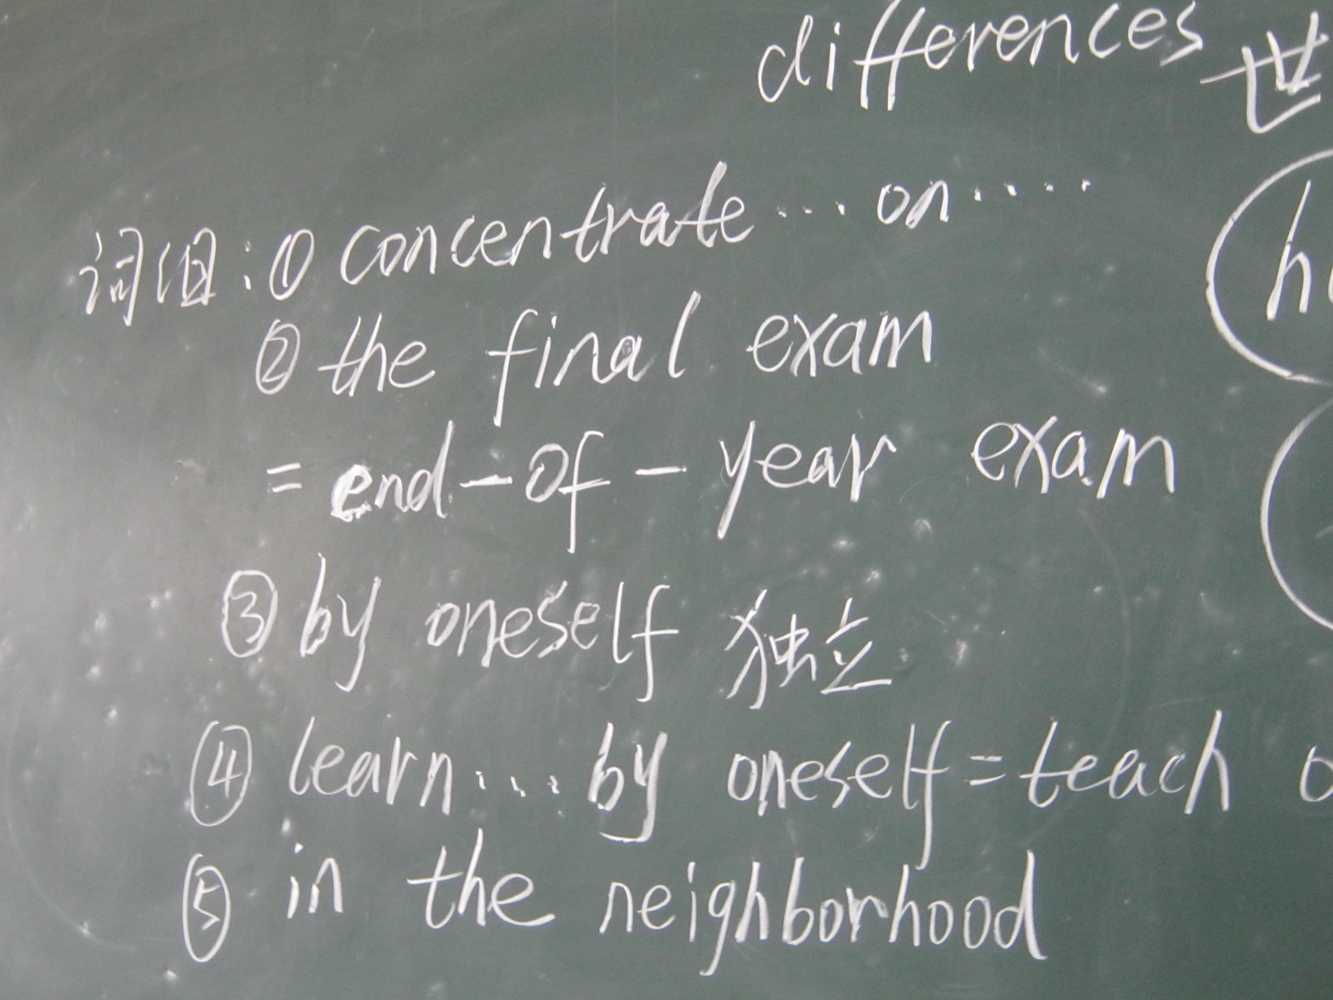 differences 世
词组:① concentrate... on....
② the final exam
= end-of-year exam
③ by oneself 独立
④ learn... by oneself = teach o
⑤ in the neighborhood
h